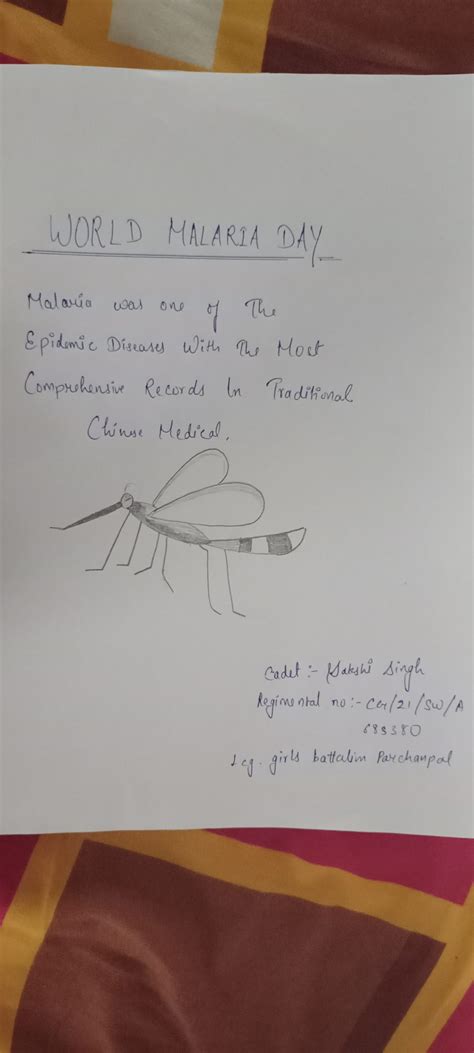 WORLD MALARIA DAY
Malaria was one of The
Epidemic Diseases With The Most
Comprehensive Records In Traditional
Chinse Medical.
Cadet :- Sakshi Singh
Regimental no :- CG/21/SW/A
683380
1 cg. girls battalion Parchanpal